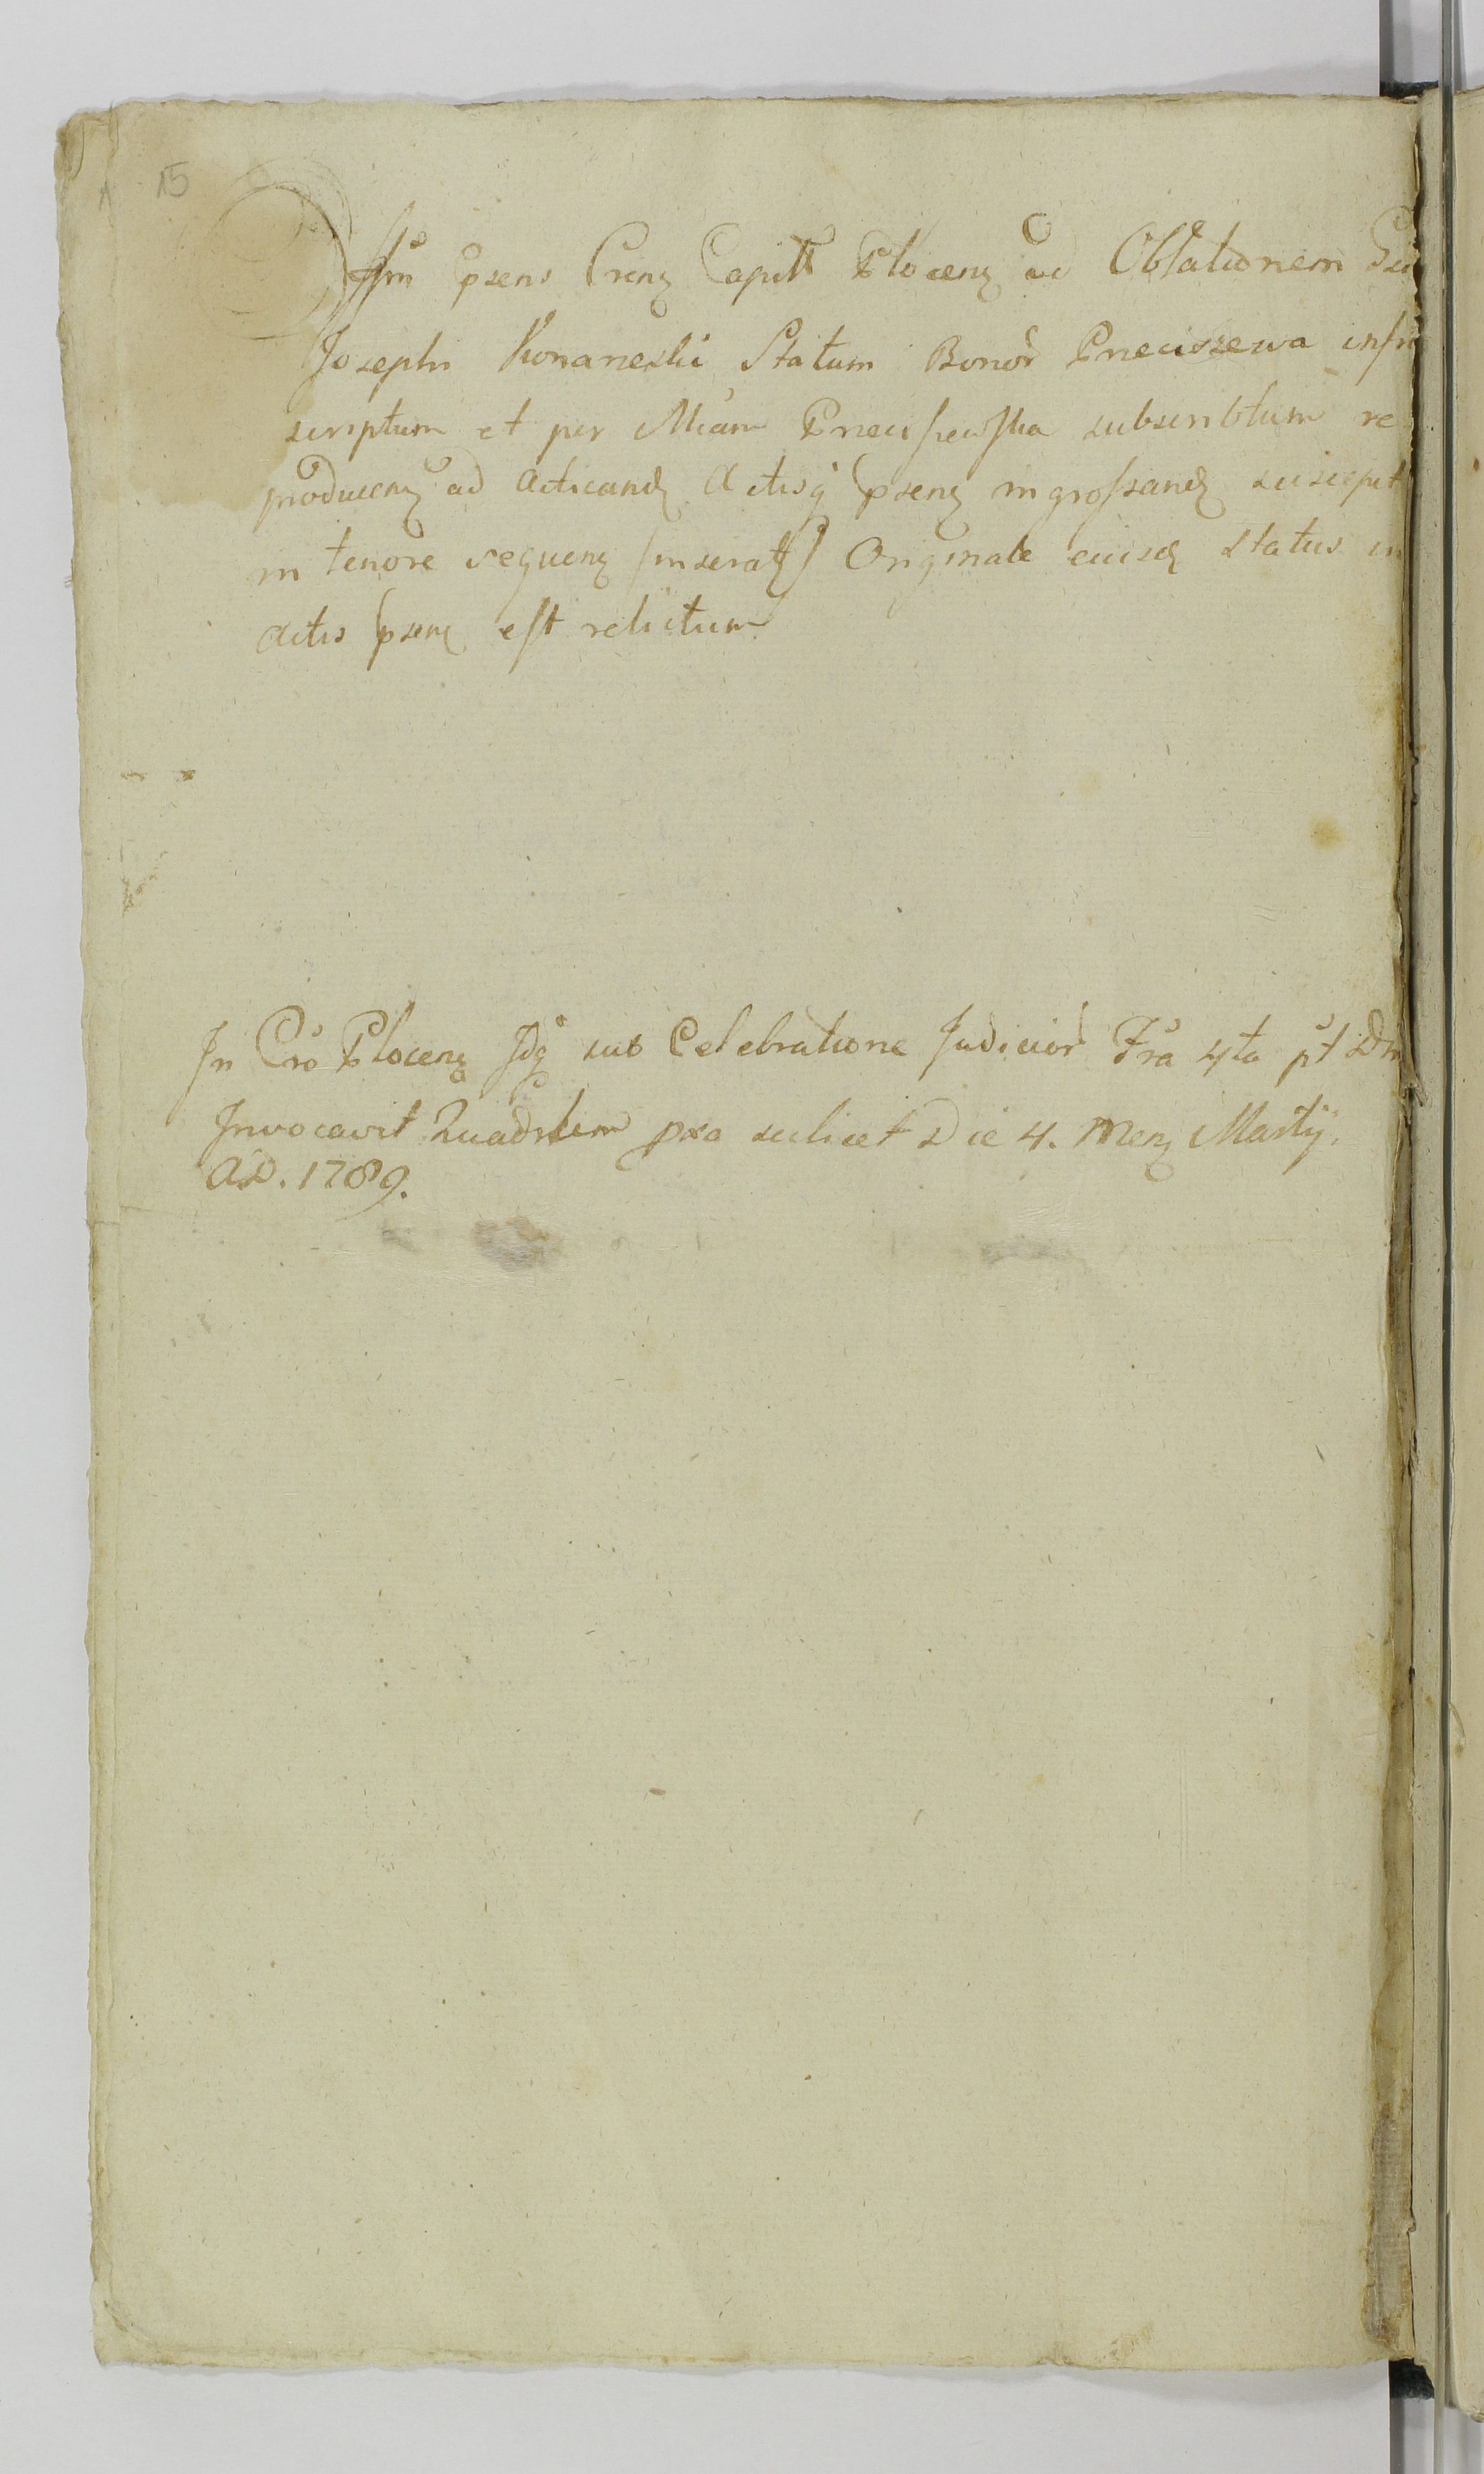 15
Offm psens Crenz Capitł Plocenz ad Oblationem Gsi
Josephi Konarzeski Statum Bonor̃ Pneciszewa infra
scriptum et per Mćam Pneciszewska subscribtum re
producenz ad acticand Actisq̃ psenz ingrossand suscepit
in tenore sequenz (inseratr) Originale eiusd status in
actis psenz est relictum
In Cro Plocenz Jdq̃ sub Celebratione Judicior̃ Fra 4ta pt Dm
Invocavit Quadrlem pxa scilicet Die 4. Menz Martÿ.
A.D. 1789.